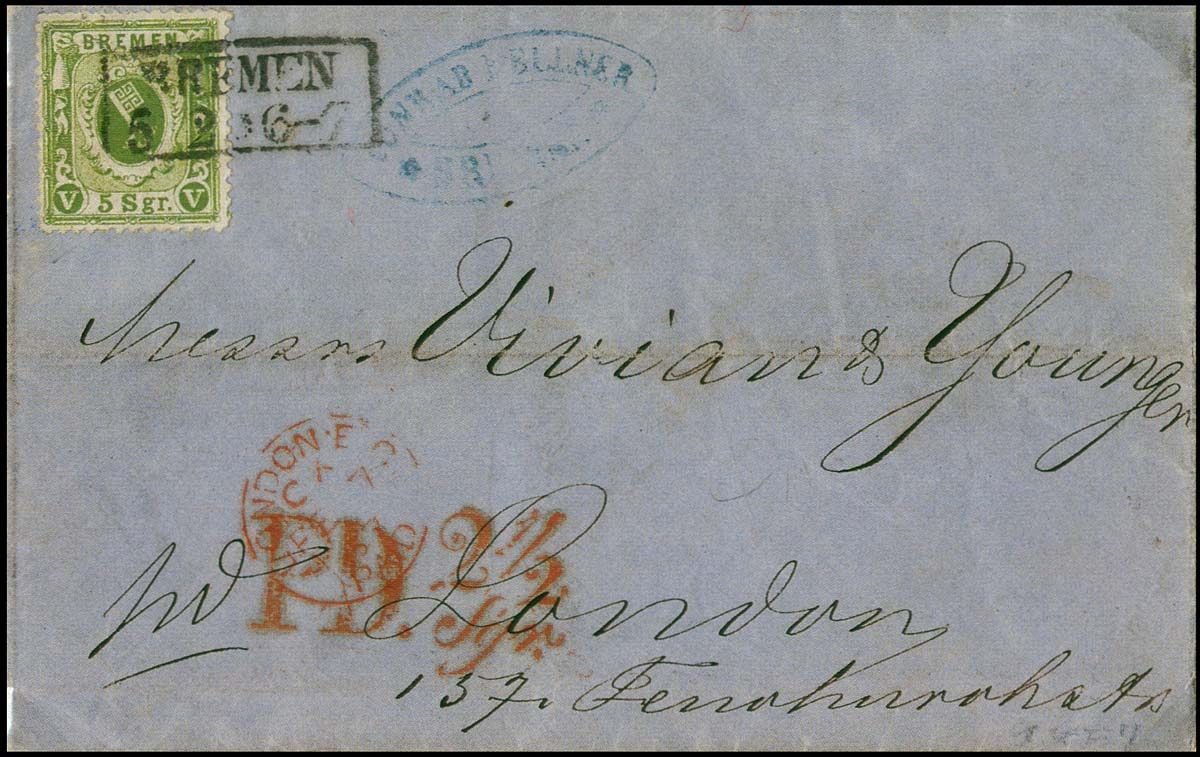 BREMEN
V 5 Sgr. V
BREMEN
5 2 6-7
Messrs Vivian & Younger
LONDON · E.C
PD. 2 1/2
Sgr.
pd London
157. Fenchurchstr